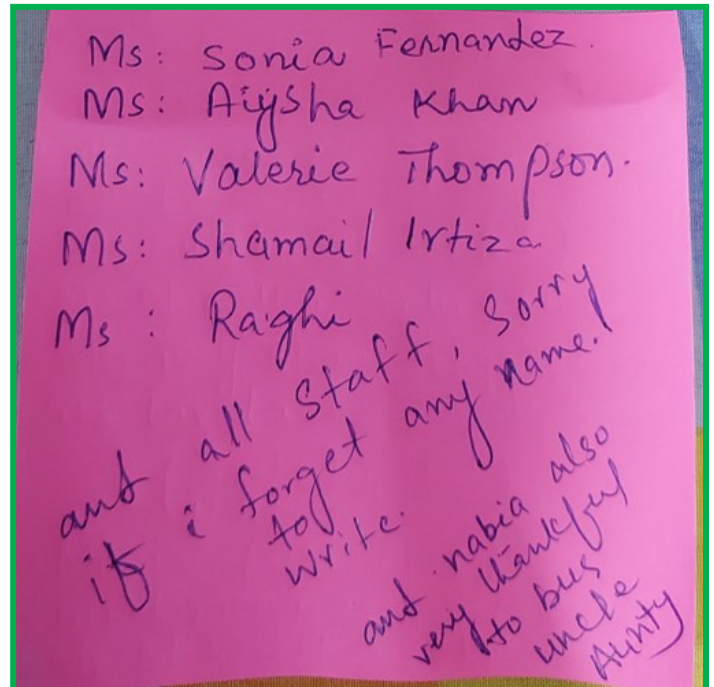 Ms: Sonia Fernandez.
Ms: Aiysha Khan
Ms: Valerie Thompson.
Ms: Shamail Irtiza
Ms: Raghi
and all Staff, Sorry
if i forget any name.
to
write.
and nabia also
very thankful
to bus
uncle
Aunty